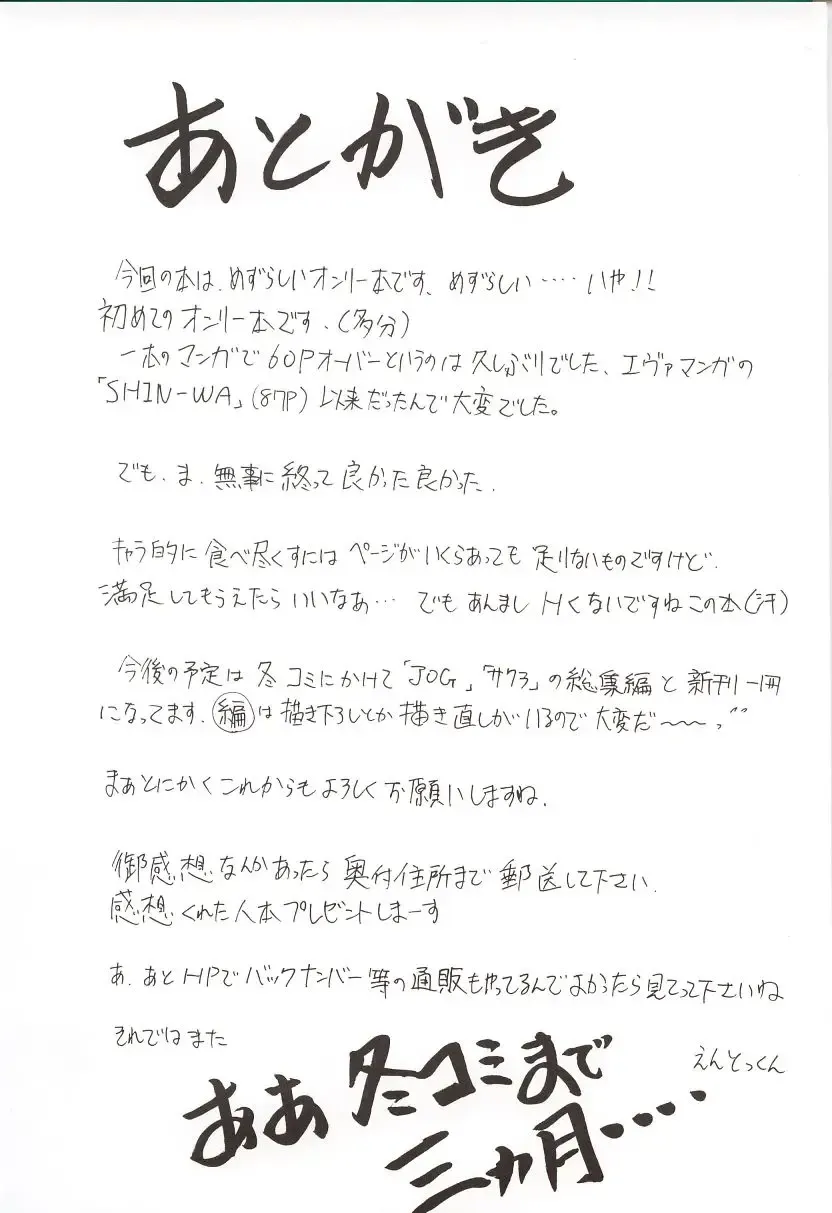 あとがき
今回の本は、めずらしいオンリー本です、めずらしい‥‥いや!!
初めてのオンリー本です、(多分)
一本のマンガで60Pオーバーというのは久しぶりでした、エヴァマンガの
「SHIN-WA」(87P)以来だったんで大変でした。
でも、ま、無事に終って良かった良かった、
キャラ的に食べ尽くすにはページがいくらあっても足りないものですけど、
満足してもうえたらいいなあ… でもあんましHくないですねこの本(汗)
今後の予定は冬コミにかけて「JOG」「サクラ」の総集編と新刊一冊
になってます、編は描き下ろしとか描き直しがいるので大変だ〜〜っ゛
まあとにかくこれからもよろしくお願いしますね、
御感想なんかあったら奥付住所まで郵送して下さい、
感想くれた人本プレゼントしまーす
あ、あとHPでバックナンバー等の通販もやってるんでよかったら見てって下さいね
それではまた
えんとっくん
ああ冬コミまで
三ヵ月‥‥